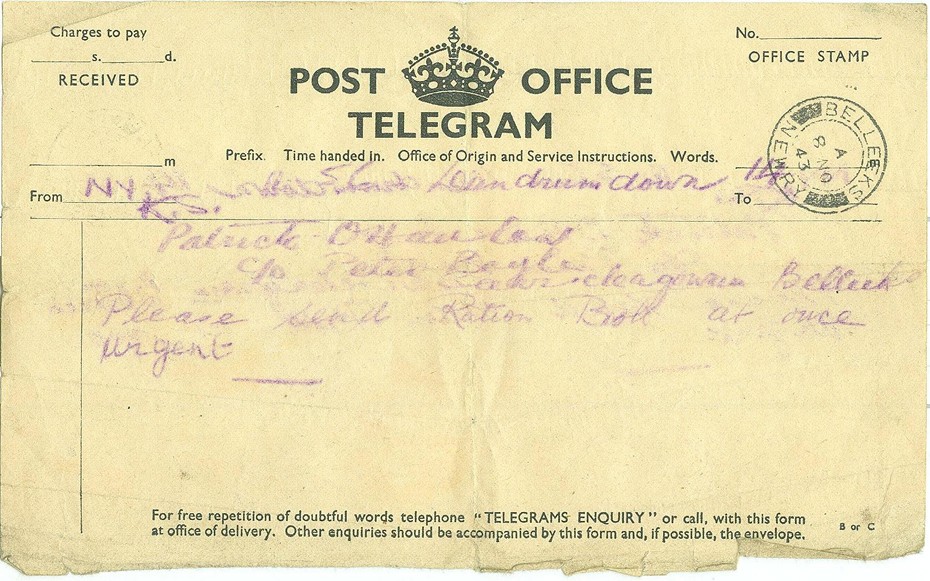 Charges to pay
s. d.
RECEIVED
POST OFFICE
TELEGRAM
No.
OFFICE STAMP
BELLEEKS
NEWRY
A
8 NO
43
m
Prefix. Time handed in. Office of Origin and Service Instructions. Words.
From NY Dundrum down 14 To
K.S.
Patrick O'Hanlon
c/o Peter Boyle
Belleeks
Please send Ration Book at once
urgent
For free repetition of doubtful words telephone "TELEGRAMS ENQUIRY" or call, with this form
at office of delivery. Other enquiries should be accompanied by this form and, if possible, the envelope.
B or C